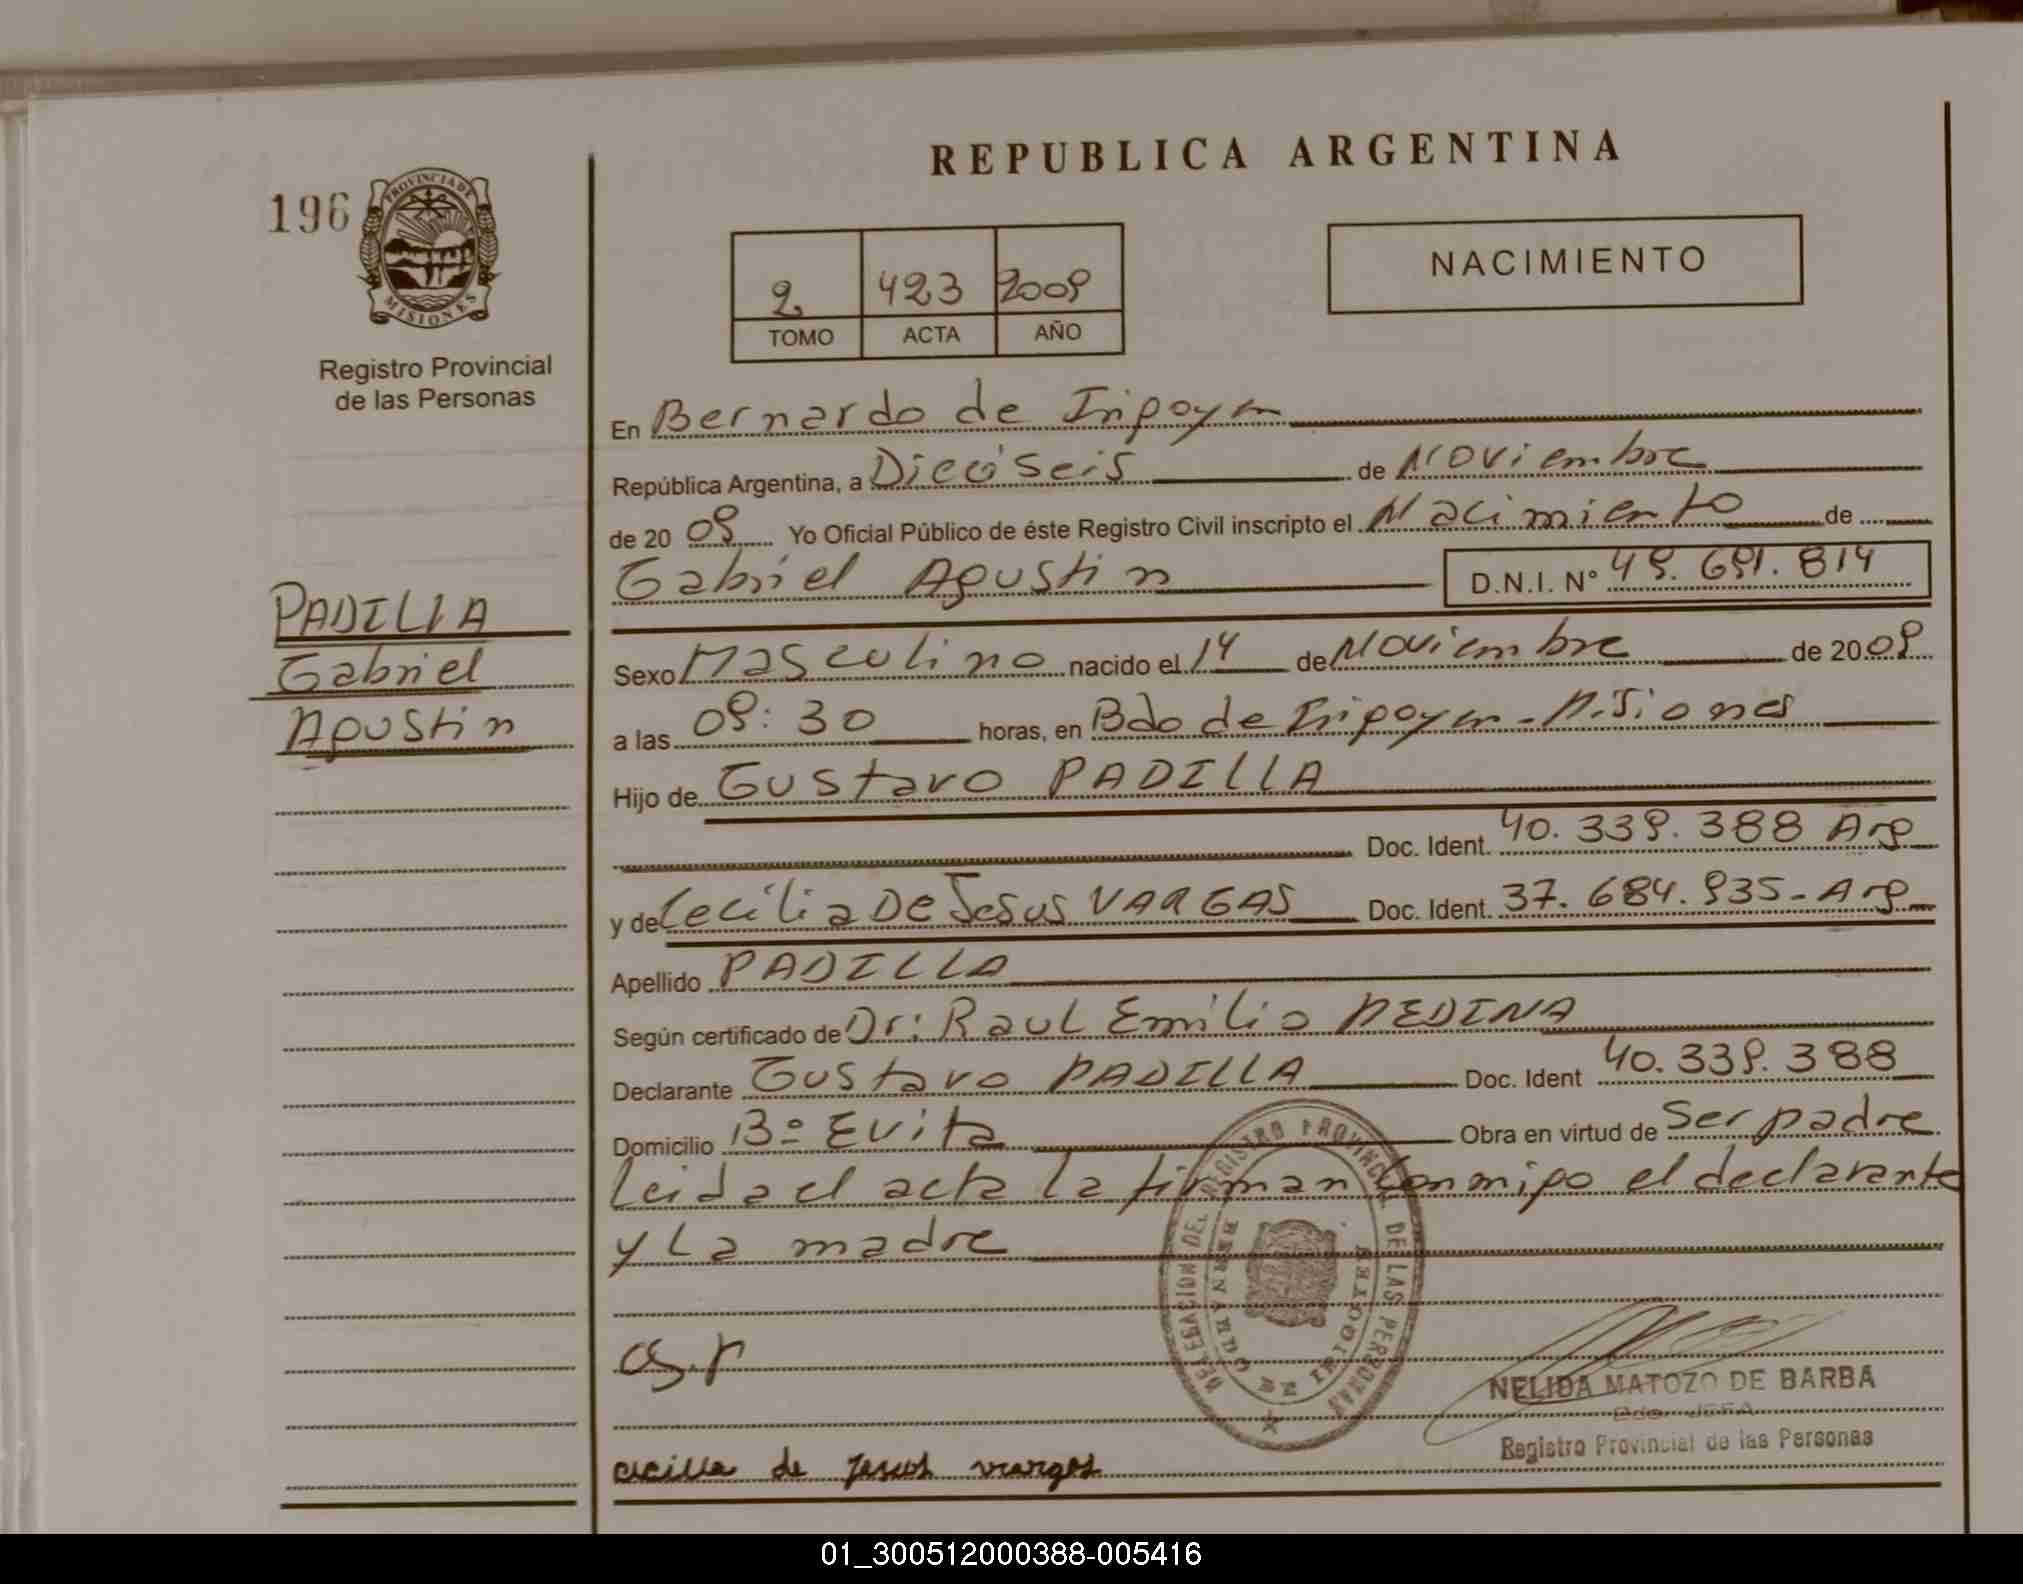 REPUBLICA ARGENTINA
196
PROVINCIA DE
MISIONES
Registro Provincial
de las Personas
2 423 2009
TOMO ACTA AÑO
NACIMIENTO
En Bernardo de Irigoyen
República Argentina, a Dieciseis de Noviembre
de 20 09 Yo Oficial Público de éste Registro Civil inscripto el Nacimiento de
Gabriel Agustin D.N.I. N° 49.691.814
PADILLA
Gabriel
Agustin
Sexo Masculino nacido el 14 de Noviembre de 20 09
a las 09:30 horas, en Bdo de Irigoyen - Misiones
Hijo de Gustavo PADILLA
Doc. Ident. 40.339.388 Arg
y de Cecilia De Jesus VARGAS Doc. Ident. 37.684.935 - Arg
Apellido PADILLA
Según certificado de Dr: Raul Emilio MEDINA
Declarante Gustavo PADILLA Doc. Ident 40.339.388
Domicilio B° Evita Obra en virtud de Ser padre
Leida el acta la firman conmigo el declarante
y La madre
DELEGACION DEL REGISTRO PROVINCIAL DE LAS PERSONAS
BERNARDO DE IRIGOYEN
NELIDA MATOZO DE BARBA
JEFA
Registro Provincial de las Personas
cecilia de jesus vargas
01_300512000388-005416